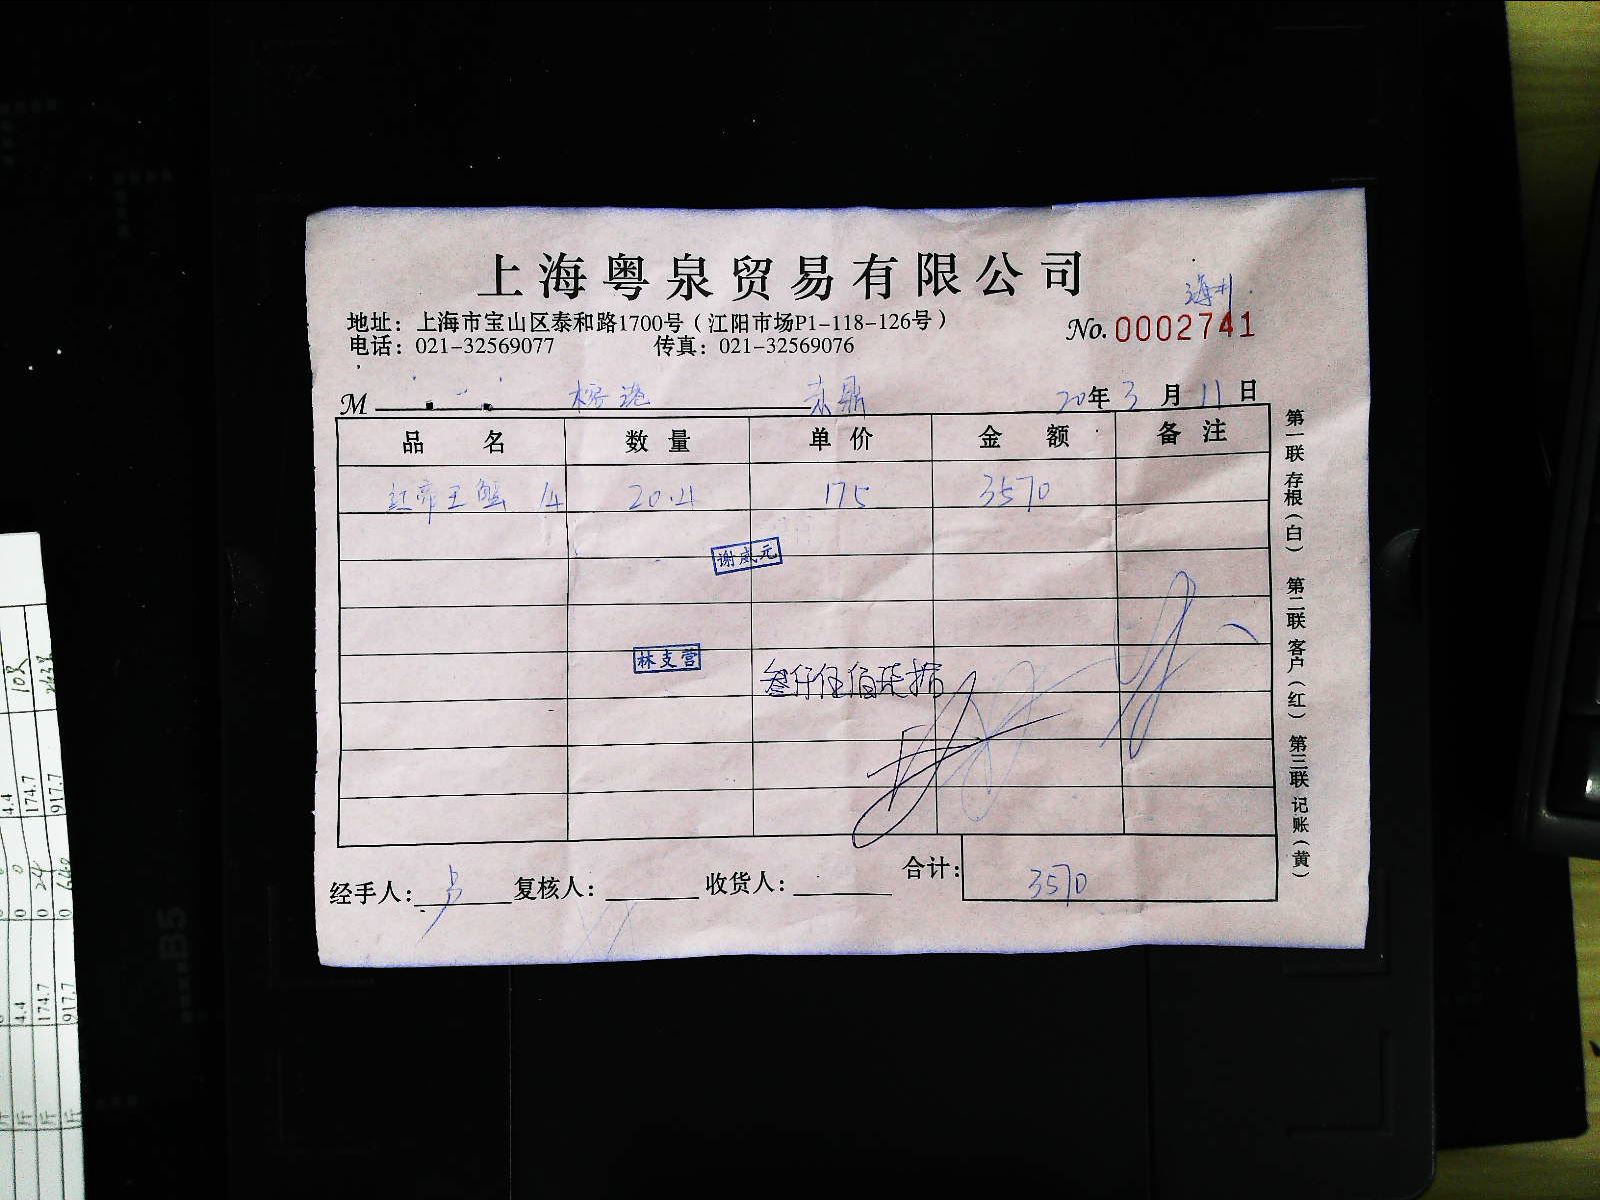 上海粤泉贸易有限公司
地址：上海市宝山区泰和路1700号（江阳市场P1-118-126号）
电话：021-32569077 传真：021-32569076
No. 0002741
M 榕港 20年3月11日
品名 数量 单价 金额 备注
红帝王蟹 20.4 175 3570
谢威元
林支营
叁仟伍佰柒拾
合计：3570
经手人： 复核人： 收货人：
第一联 存根（白） 第二联 客户（红） 第三联 记账（黄）
B5
10只
4.4
174.7
917.7
0 0
24 0
640 0
4.4
174.7
917.7
斤
斤
斤